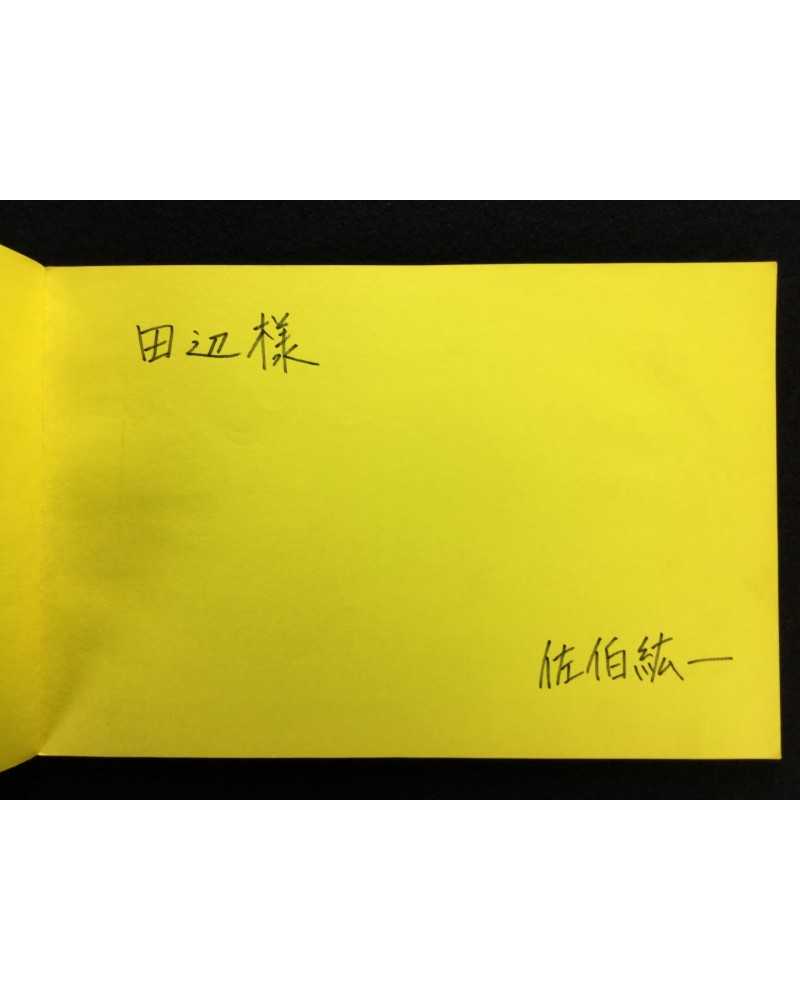 田辺様
佐伯紘一